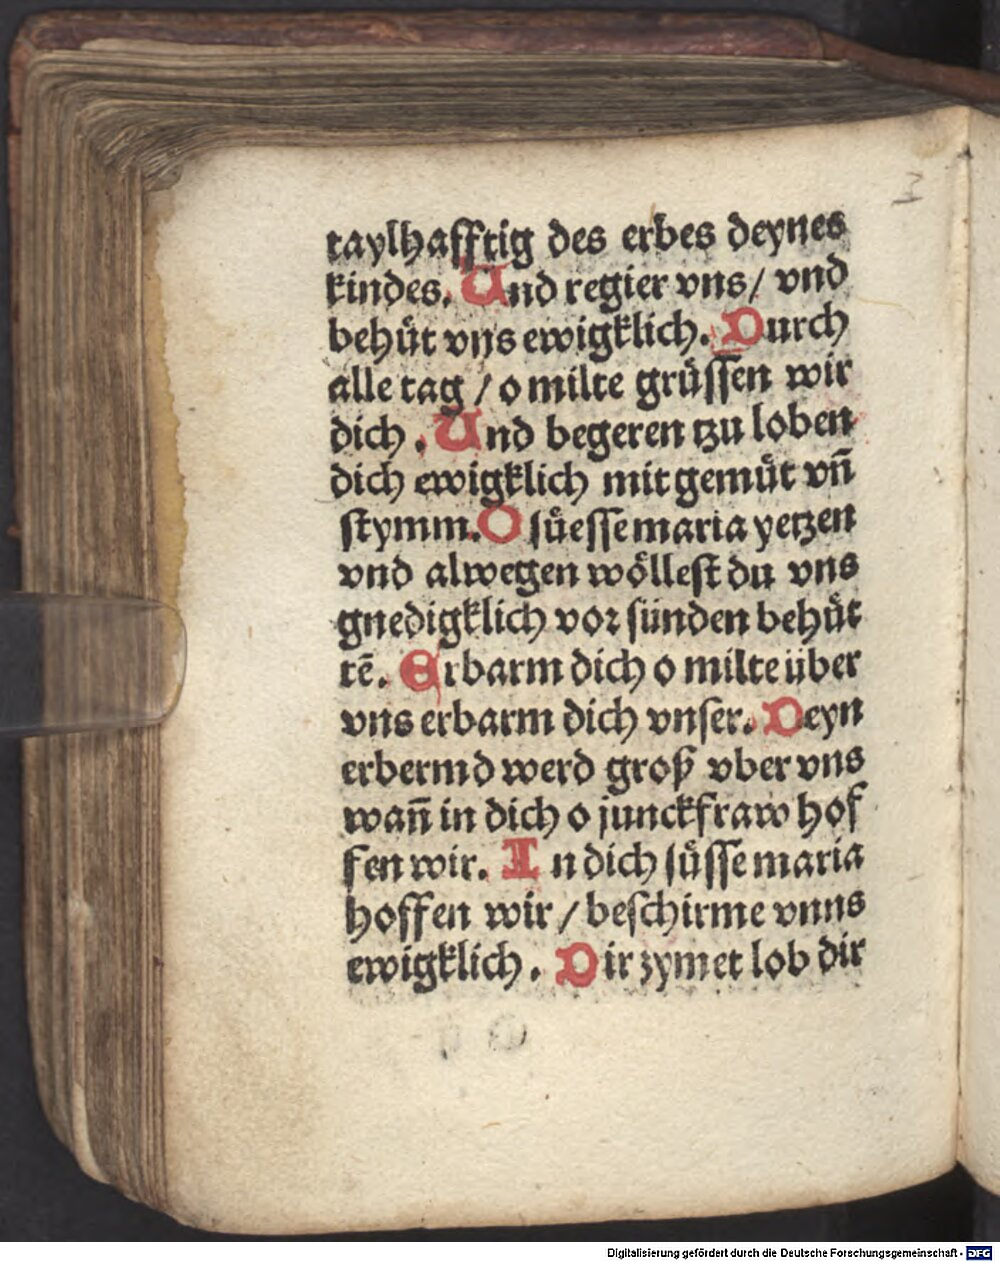 taylhafftig des erbes deynes
kindes. Und regier vns/ vnd
behuͤt vns ewigklich. Durch
alle tag / o milte gruͤssen wir
dich. Und begeren tzu loben
dich ewigklich mit gemuͤt vn̄
stymm. O suͤesse maria yetzen
vnd alwegen woͤllest du vns
gnedigklich vor sünden behuͤt
tē. Erbarm dich o milte über
vns erbarm dich vnser. Deyn
erbermd werd groß vber vns
wan̄ in dich o junckfraw hof
fen wir. In dich süsse maria
hoffen wir / beschirme vnns
ewigklich. Dir zymet lob dir
Digitalisierung gefördert durch die Deutsche Forschungsgemeinschaft - DFG